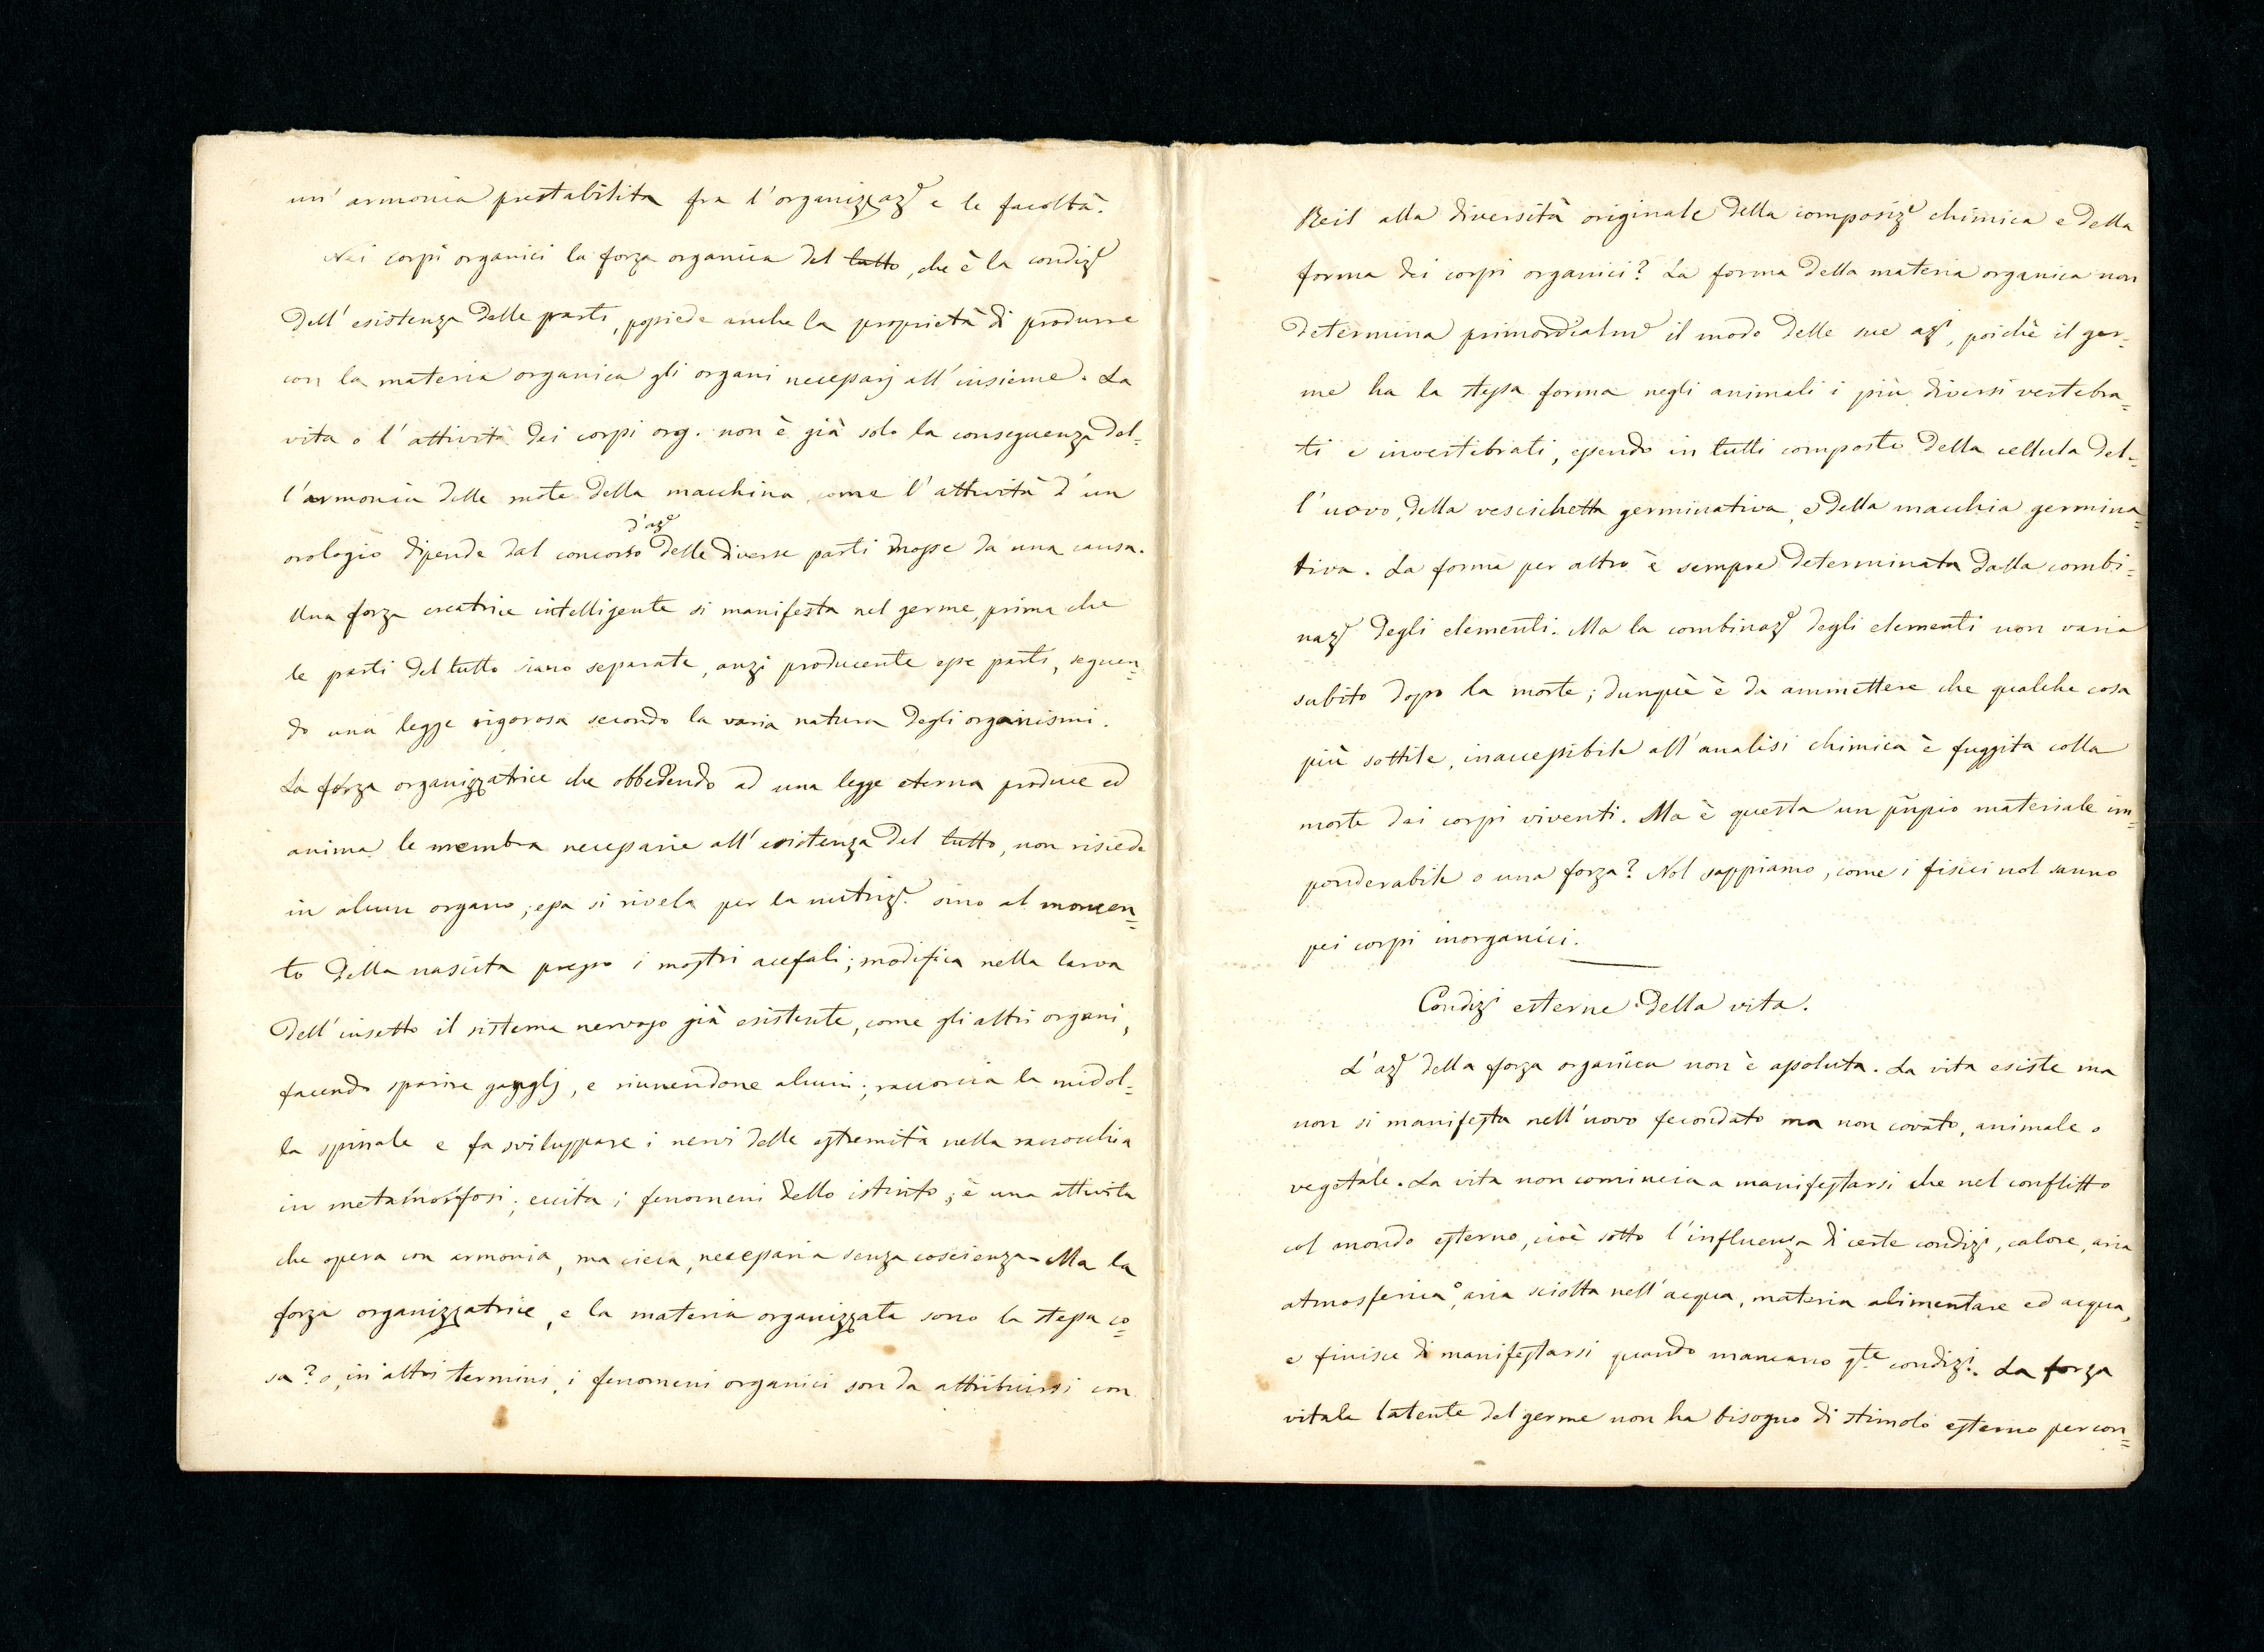 un' armonia prestabilita fra l'organizzaz.e e le facoltà.
Nei corpi organici la forza organica del tutto, che è la condiz.e
dell' esistenza delle parti, possiede anche la proprietà di produrre
con la materia organica gli organi necessarj all' insieme. La
vita o l'attività dei corpi org. non è già solo la conseguenza del=
l'armonia delle ruote della macchina, come l'attività d'un
d'az.e
orologio dipende dal concorso delle diverse parti mosse da una causa.
Una forza creatrice intelligente si manifesta nel germe, prima che
le parti del tutto siano separate, anzi producente esse parti, seguen=
do una legge rigorosa secondo la varia natura degli organismi.
La forza organizzatrice che obbedendo ad una legge eterna produce ed
anima le membra necessarie all' esistenza del tutto, non risiede
in alcun organo; essa si rivela per la nutriz.e sino al momen=
to della nascita presso i mostri acefali; modifica nella larva
dell' insetto il sistema nervoso già esistente, come gli altri organi,
facendo sparire ganglj, e riunendone alcuni; raccorcia la midol=
la spinale e fa sviluppare i nervi delle estremità nella ranocchia
in metamorfosi; eccita i fenomeni dello istinto; è una attività
che opera con armonia, ma cieca, necessaria senza coscienza. Ma la
forza organizzatrice, e la materia organizzata sono la stessa co=
sa? o, in altri termini, i fenomeni organici son da attribuirsi con
Reil alla diversità originale della composiz.e chimica e della
forma dei corpi organici? La forma della materia organica non
determina primordialm.e il modo delle sue az.i, poichè il ger=
me ha la stessa forma negli animali i più diversi vertebra=
ti e invertebrati, essendo in tutti composto della cellula del=
l'uovo, della vescichetta germinativa, e della macchia germina=
tiva. La forma per altro è sempre determinata dalla combi=
naz.e degli elementi. Ma la combinaz.e degli elementi non varia
subito dopo la morte; dunque è da ammettere che qualche cosa
più sottile, inaccessibile all' analisi chimica è fuggita colla
morte dai corpi viventi. Ma è questa un pñpio materiale im=
ponderabile o una forza? Nol sappiamo, come i fisici nol sanno
pei corpi inorganici.
Condiz.i esterne della vita.
L'az.e della forza organica non è assoluta. La vita esiste ma
non si manifesta nell' uovo fecondato ma non covato, animale o
vegetale. La vita non comincia a manifestarsi che nel conflitto
col mondo esterno, cioè sotto l'influenza di certe condiz.i, calore, aria
atmosferica o aria sciolta nell' acqua, materia alimentare ed acqua,
e finisce di manifestarsi quando mancano q.te condiz.i. La forza
vitale latente del germe non ha bisogno di stimolo esterno per con=